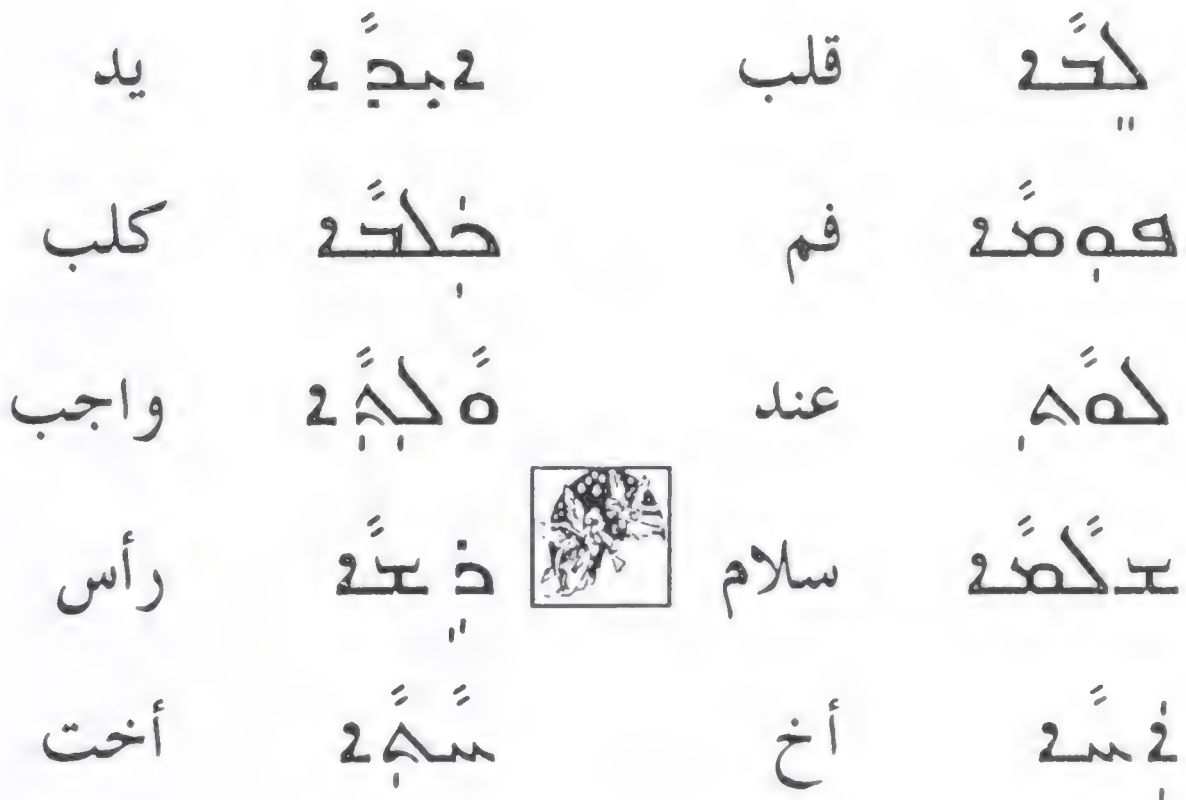 ܠܸܒܵܐ قلب ܐܝܼܕܵܐ يد
ܦܘܼܡܵܐ فم ܟܲܠܒܵܐ كلب
ܠܘܵܬ݂ عند ܘܵܠܝܼܬ݂ܵܐ واجب
ܫܠܵܡܵܐ سلام ܪܹܫܵܐ رأس
ܐܲܚܵܐ أخ ܚܵܬ݂ܵܐ أخت